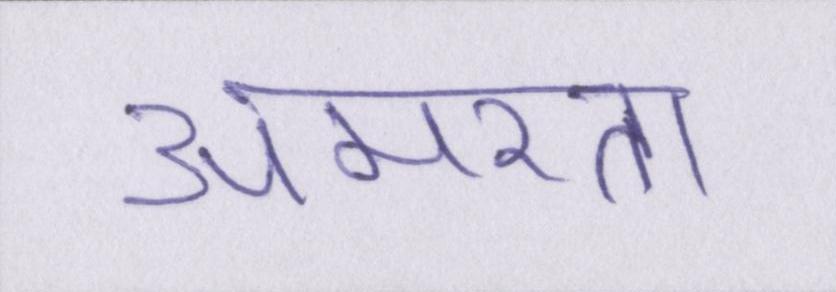 अमरता